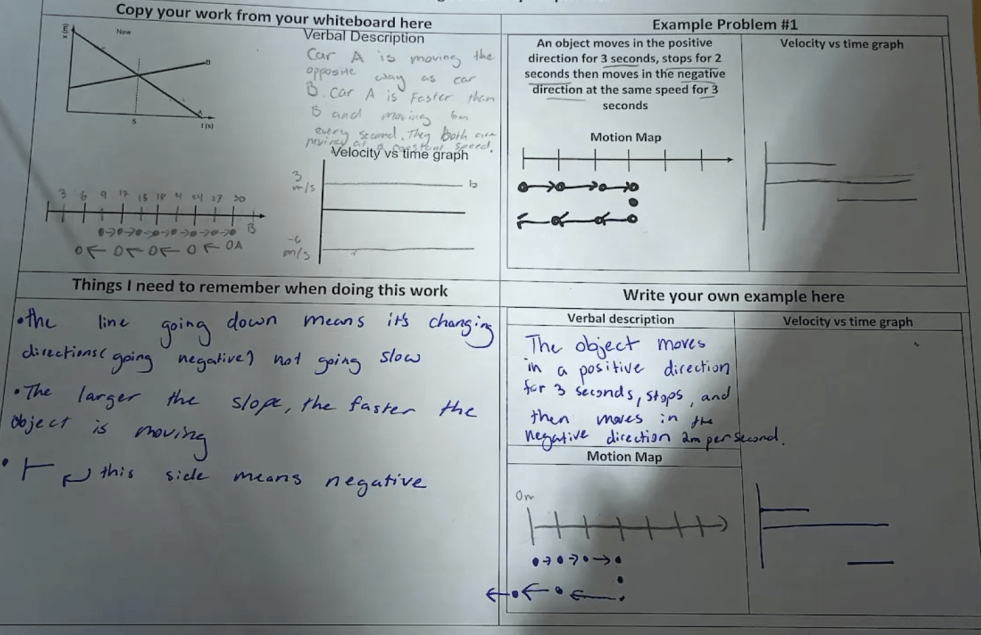 Copy your work from your whiteboard here
New
B
A
5
t (s)
Verbal Description
Car A is moving the
opposite way as car
B. Car A is Faster than
B and moving 6m
every second. They both are
moving at a constant speed.
Velocity vs time graph
3 m/s
b
-6 m/s
3 6 9 12 15 18 21 24 27 30
B
A
Example Problem #1
An object moves in the positive
direction for 3 seconds, stops for 2
seconds then moves in the negative
direction at the same speed for 3
seconds
Motion Map
Velocity vs time graph
Things I need to remember when doing this work
•the line going down means it's changing
directions (going negative) not going slow
•The larger the slope, the faster the
object is moving
• this side means negative
Write your own example here
Verbal description
The object moves
in a positive direction
for 3 seconds, stops, and
then moves in the
negative direction 2m per second.
Motion Map
0m
Velocity vs time graph